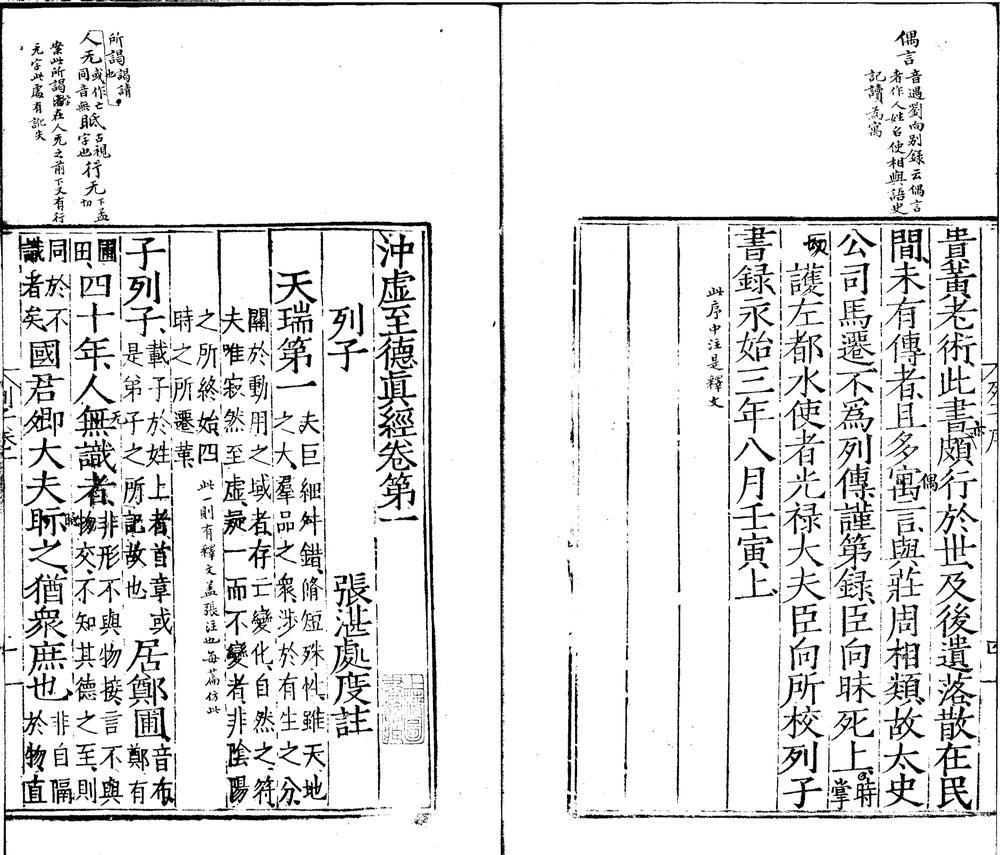 偶言音遇劉向别録云偶言
者作人姓名使相與語史
記讀為寓
貴黃老術此書頗行於世及後遺落散在民
間未有傳者且多寓言與莊周相類故太史
公司馬遷不爲列傳謹第録臣向昧死上
護左都水使者光禄大夫臣向所校列子
書録永始三年八月壬寅上
此序中注是釋文
沖虚至德真經卷第一
列子
張湛處度註
天瑞第一
夫巨細舛錯脩短殊性雖天地
之大羣品之衆涉於有生之分
關於動用之域者存亡變化自然之符
夫唯寂然至虚凝一而不變者非陰陽
之所終始四
時之所遷革
此一則有釋文蓋張注也每篇仿此
子列子
載子於姓上者首章或
是弟子之所記故也
居鄭圃
音布
鄭有
圃
田
四十年人無識者
非形不與物接言不與
物交不知其德之至則
同於不
識者矣
國君卿大夫眎之猶衆庶也
非自隔
於物直
所謁謁請
也
人无或作亡
同音無
眂古視
字也
行无下孟
切
案此所謁當在人无之前下又有行
无字此處有訛失